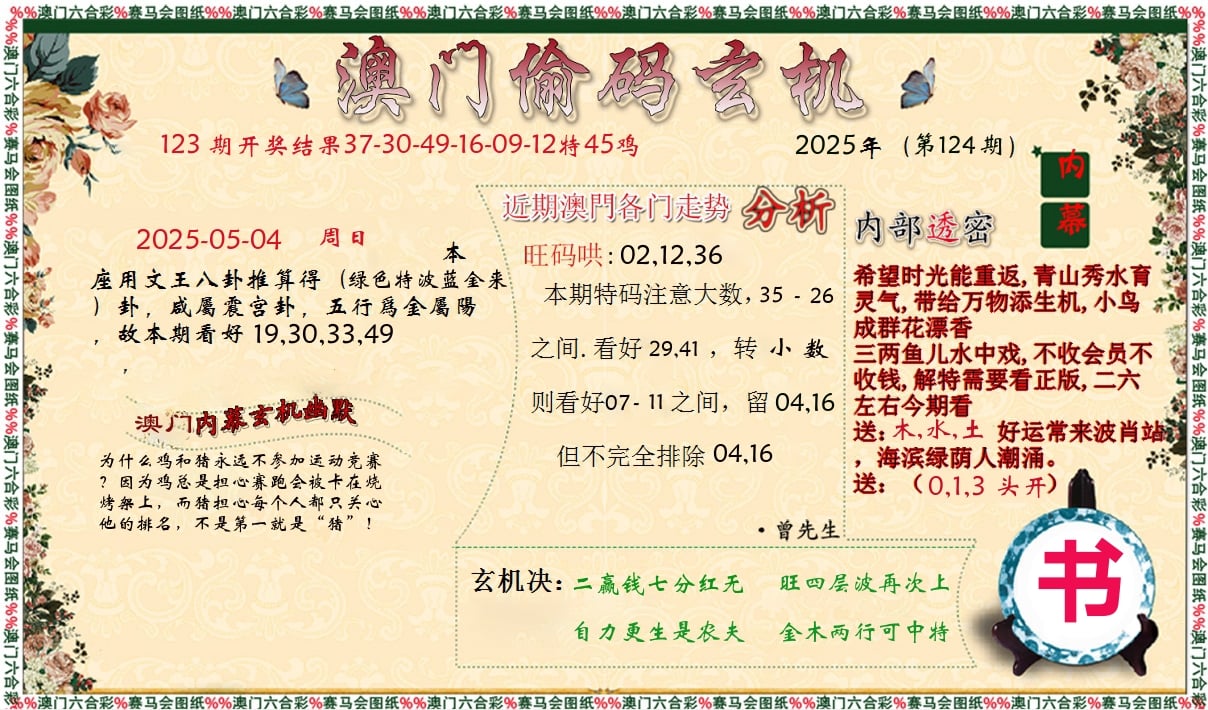 %%澳门六合彩%赛马会图纸%%澳门六合彩%赛马会图纸%%澳门六合彩%赛马会图纸%%澳门六合彩%赛马会图纸%%澳门六合彩%赛马会图纸%%澳门六合彩%赛马会图纸%%
澳门偷码玄机
123 期开奖结果37-30-49-16-09-12特45鸡
2025年（第124期）
内幕
2025-05-04 周日
本
座用文王八卦推算得（绿色特波蓝金来
）卦，咸屬震宫卦，五行爲金屬陽
，故本期看好 19,30,33,49
，
澳门内幕玄机幽默
为什么鸡和猪永远不参加运动竞赛
？因为鸡总是担心赛跑会被卡在烧
烤架上，而猪担心每个人都只关心
他的排名，不是第一就是“猪”！
近期澳門各门走势 分析
旺码哄: 02,12,36
本期特码注意大数, 35 - 26
之间. 看好 29,41 ，转 小 数
则看好07- 11 之间，留 04,16
但不完全排除 04,16
·曾先生
内部透密
希望时光能重返, 青山秀水育
灵气, 带给万物添生机, 小鸟
成群花漂香
三两鱼儿水中戏, 不收会员不
收钱, 解特需要看正版, 二六
左右今期看
送: 木,水,土 好运常来波肖站
，海滨绿荫人潮涌。
送: （0,1,3 头开）
玄机决: 二赢钱七分红无 旺四层波再次上
自力更生是农夫 金木两行可中特
书
%%澳门六合彩%赛马会图纸%%澳门六合彩%赛马会图纸%%澳门六合彩%赛马会图纸%%澳门六合彩%赛马会图纸%%澳门六合彩%赛马会图纸%%澳门六合彩%赛马会图纸%%